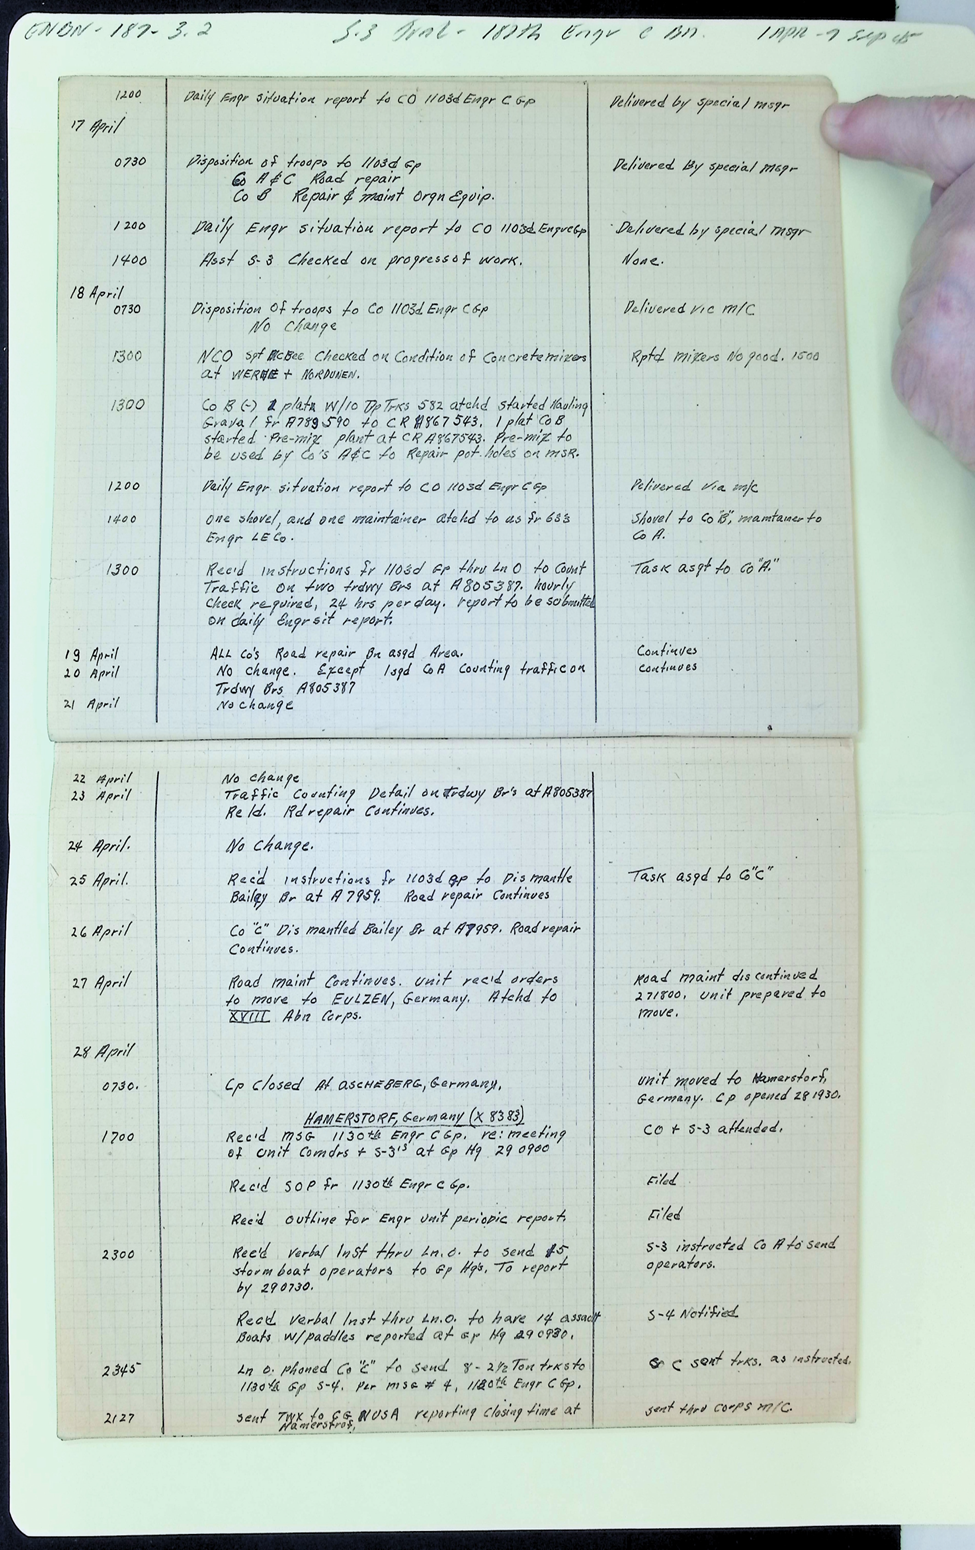 ENBN-187-3.2 S-3 Jrnl - 187th Engr C Bn. 1 Apr - 7 Sep 45
1200 Daily Engr situation report to CO 1103d Engr C Gp Delivered by special msgr
17 April
0730 Disposition of troops to 1103d Gp Delivered By special msgr
Co A & C Road repair
Co B Repair & maint Orgn Equip.
1200 Daily Engr situation report to CO 1103d Engr C Gp Delivered by special msgr
1400 Asst S-3 Checked on progress of work. None.
18 April
0730 Disposition Of troops to Co 1103d Engr C Gp Delivered via m/c
No Change
1300 NCO Sgt McBee Checked on Condition of Concrete mixers Rptd mixers No good. 1500
at WERNE + NORDUNEN.
1300 Co B (-) 1 platn W/10 Dp Trks 582 atchd started Hauling
Gravel fr A789590 to CR A867543. 1 plat Co B
started Pre-mix plant at CR A867543. Pre-mix to
be used by Co's A&C to Repair pot holes on MSR.
1200 Daily Engr situation report to CO 1103d Engr C Gp Delivered via m/c
1400 One shovel, and one maintainer atchd to us fr 633 Shovel to Co "B", maintainer to
Engr LE Co. Co A.
1300 Rec'd instructions fr 1103d Gp thru Ln O to Count Task asgt to Co "A."
Traffic on two trdwy Brs at A805387. hourly
check required, 24 hrs per day. report to be submitted
on daily Engr sit report.
19 April ALL Co's Road repair Bn asgd Area. Continues
20 April No change. Except 1 sqd Co A Counting traffic on Continues
Trdwy Brs A805387
21 April No change
22 April No change
23 April Traffic Counting Detail on Trdwy Br's at A805387
Reld. Rd repair Continues.
24 April. No Change.
25 April. Rec'd instructions fr 1103d Gp to Dismantle Task asgd to Co "C"
Bailey Br at A7959. Road repair Continues
26 April Co "C" Dismantled Bailey Br at A7959. Road repair
Continues.
27 April Road maint Continues. Unit rec'd orders Road maint discontinued
to move to EULZEN, Germany. Atchd to 271800. Unit prepared to
XVIII Abn Corps. move.
28 April
0730. Cp Closed At ASCHEBERG, Germany, Unit moved to Hamerstorf,
Germany. Cp opened 281930.
HAMERSTORF, Germany (X 8383)
1700 Rec'd MSG 1130th Engr C Gp. re: meeting CO + S-3 attended.
of Unit Comdrs + S-3's at Gp Hq 290900
Rec'd SOP fr 1130th Engr C Gp. Filed
Rec'd outline for Engr Unit periodic report. Filed
2300 Rec'd verbal Inst thru Ln.O. to send 15 S-3 instructed Co A to send
storm boat operators to Gp Hqs. To report operators.
by 290730.
Rec'd verbal Inst thru Ln.O. to have 14 assault S-4 Notified
Boats w/paddles reported at Gp Hq 290930.
2345 Ln O. phoned Co "C" to send 8-2½ Ton trks to Co C sent trks. as instructed.
1130th Gp S-4. Per msg # 4, 1130th Engr C Gp.
2127 sent TWX to CG NUSA reporting Closing time at sent thru Corps M/C.
Hamerstrof,